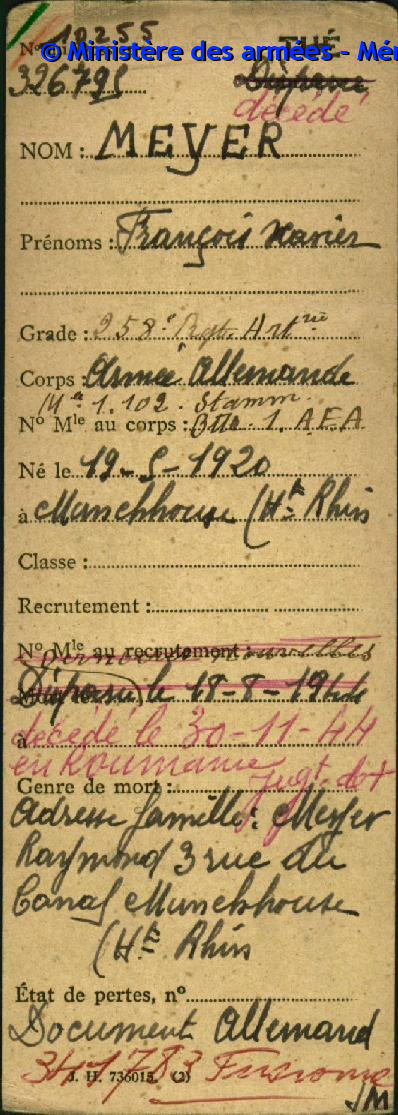 N° 10255
© Ministère des armées - Mé
TUÉ
326791
Disparu
décédé
NOM : MEYER
Prénoms : François Xavier
Grade : 258e Rgt. Artrie
Corps : Armée Allemande
Mle 1.102. Stamm
N° Mle au corps : Btte. 1. AEA
Né le 19-5-1920
à Munchhouse (Ht Rhin
Classe :
Recrutement :
N° Mle au recrutement :
Disparu le 18-8-1944
décédé le 30-11-44
à
en Roumanie
Jugt. dct
Genre de mort :
Adresse famille : Meyer
Raymond 3 rue du
Canal Munchhouse
(Ht Rhin
État de pertes, n°
Document Allemand
J. H. 736015. (2)
JM